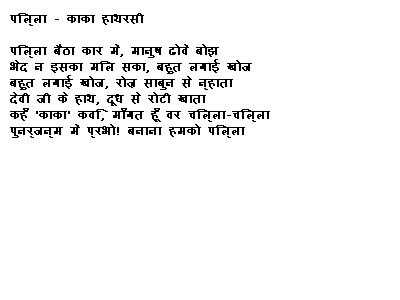 पिल्ला - काका हाथरसी
पिल्ला बैठा कार में, मानुष ढोवें बोझ
भेद न इसका मिल सका, बहुत लगाई खोज
बहुत लगाई खोज, रोज़ साबुन से न्हाता
देवी जी के हाथ, दूध से रोटी खाता
कहँ 'काका' कवि, माँगत हूँ वर चिल्ला-चिल्ला
पुनर्जन्म में प्रभो! बनाना हमको पिल्ला